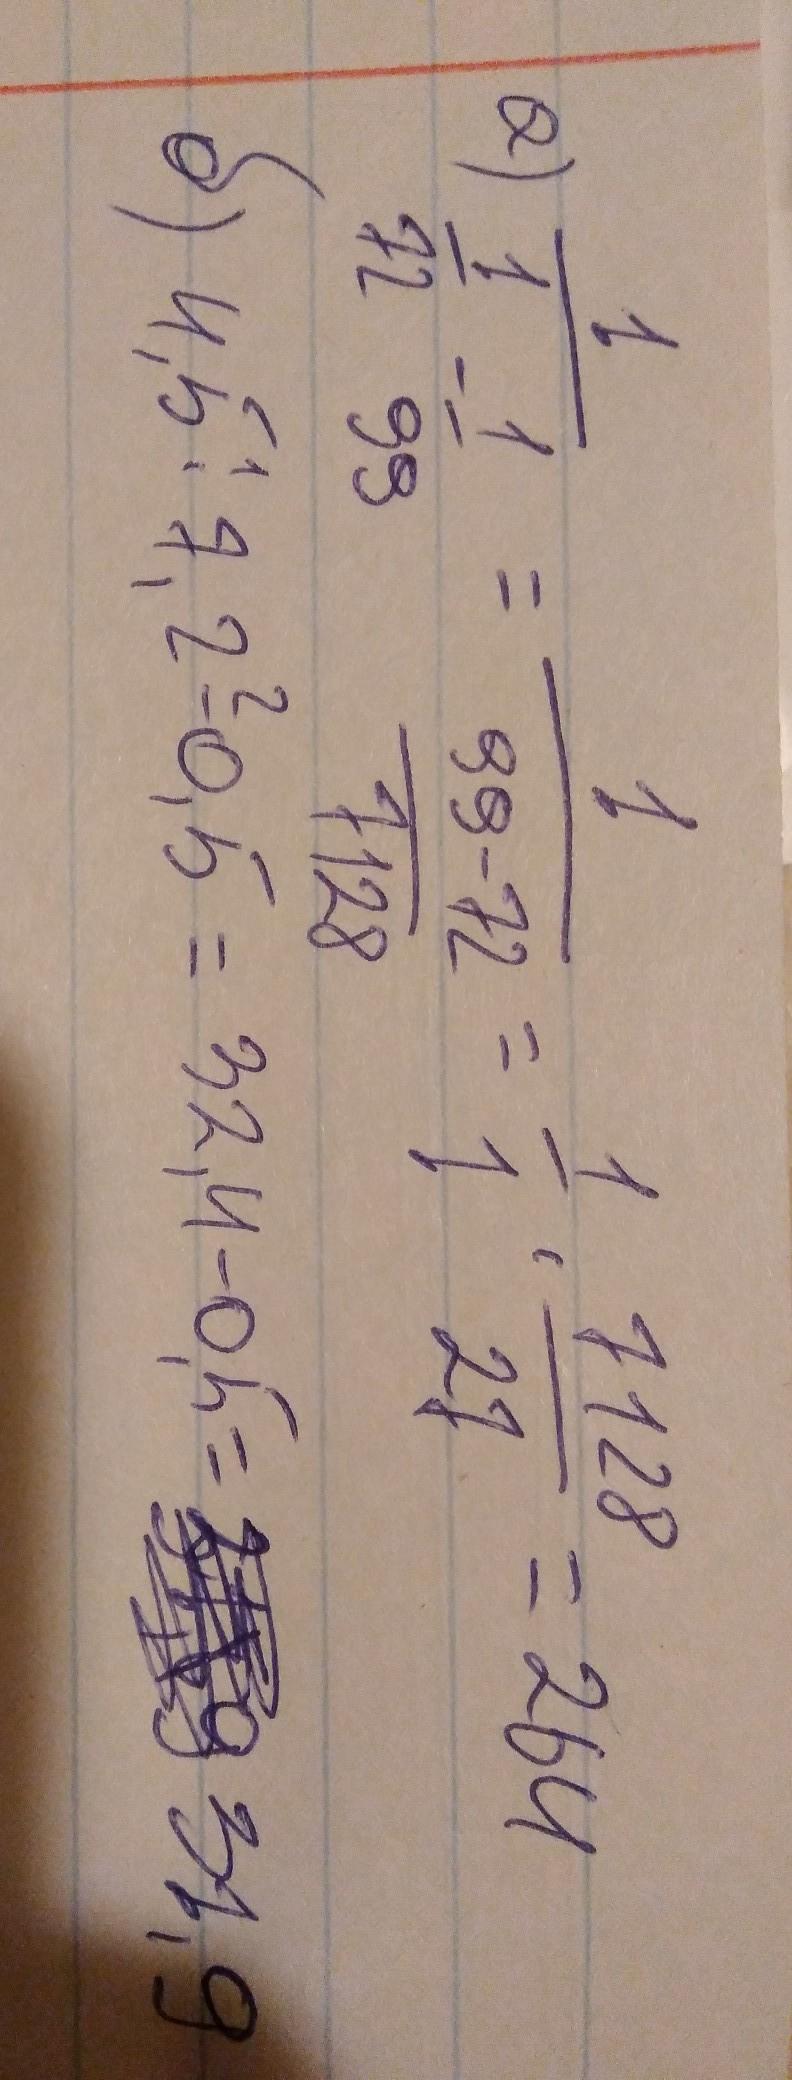 а) 1 / (1/72 - 1/99) = 1 / ((99-72)/7128) = 1/1 · 7128/27 = 264
б) 4,5 · 7,2 - 0,5 = 32,4 - 0,5 = 31,9